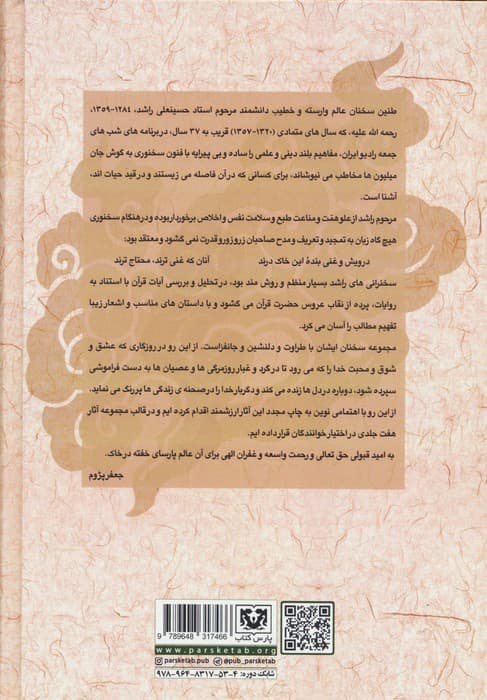 طنین سخنان عالم وارسته و خطیب دانشمند مرحوم استاد حسینعلی راشد، ۱۲۸۴-۱۳۵۹،
رحمه الله علیه، که سال های متمادی (۱۳۲۰-۱۳۵۷) قریب به ۳۷ سال، در برنامه های شب های
جمعه رادیو ایران، مفاهیم بلند دینی و علمی را ساده و بی پیرایه با فنون سخنوری به گوش جان
میلیون ها مخاطب می نیوشاند، برای کسانی که در آن فاصله می زیستند و در قید حیات اند،
آشنا است.
مرحوم راشد از علو همّت و مناعت طبع و سلامت نفس و اخلاص برخوردار بوده و در هنگام سخنوری
هیچ گاه زبان به تمجید و تعریف و مدح صاحبان زر و زور و قدرت نمی گشود و معتقد بود:
درویش و غنی بندهٔ این خاک درند آنان که غنی ترند، محتاج ترند
سخنرانی های راشد بسیار منظم و روش مند بود، در تحلیل و بررسی آیات قرآن با استناد به
روایات، پرده از نقاب عروس حضرت قرآن می گشود و با داستان های مناسب و اشعار زیبا
تفهیم مطالب را آسان می کرد.
مجموعه سخنان ایشان با طراوت و دلنشین و جانفزاست. از این رو در روزگاری که عشق و
شوق و محبت خدا را که می رود تا در گرد و غبار روزمرگی ها و عصیان ها به دست فراموشی
سپرده شود، دوباره در دل ها زنده می کند و دگربار خدا را در صحنه ی زندگی ها پررنگ می نماید.
از این رو با اهتمامی نوین به چاپ مجدد این آثار ارزشمند اقدام کرده ایم و در قالب مجموعه آثار
هفت جلدی در اختیار خوانندگان قرار داده ایم.
به امید قبولی حق تعالی و رحمت واسعه و غفران الهی برای آن عالم پارسای خفته در خاک.
جعفر پژوم
9 789648 317466
پارس کتاب
www.parsketab.org
parsketab.pub @pub_parsketab
شابک دوره: ۴-۵۳-۸۳۱۷-۹۶۴-۹۷۸